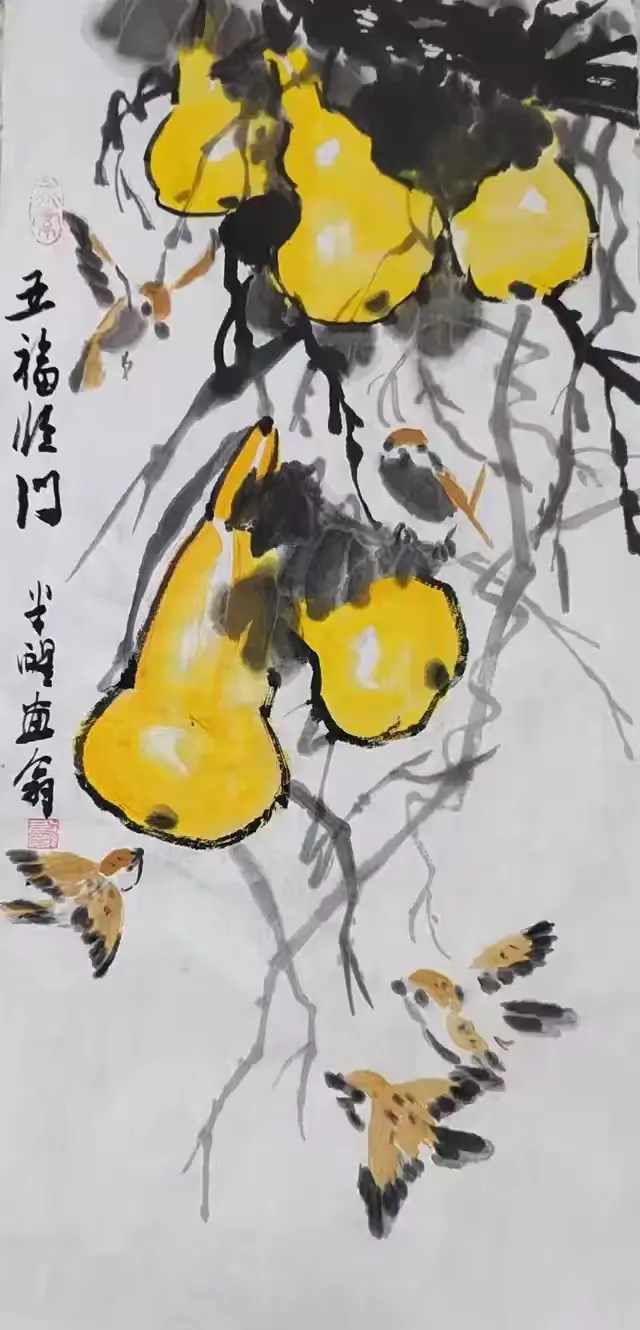 五福临门
半醒画翁